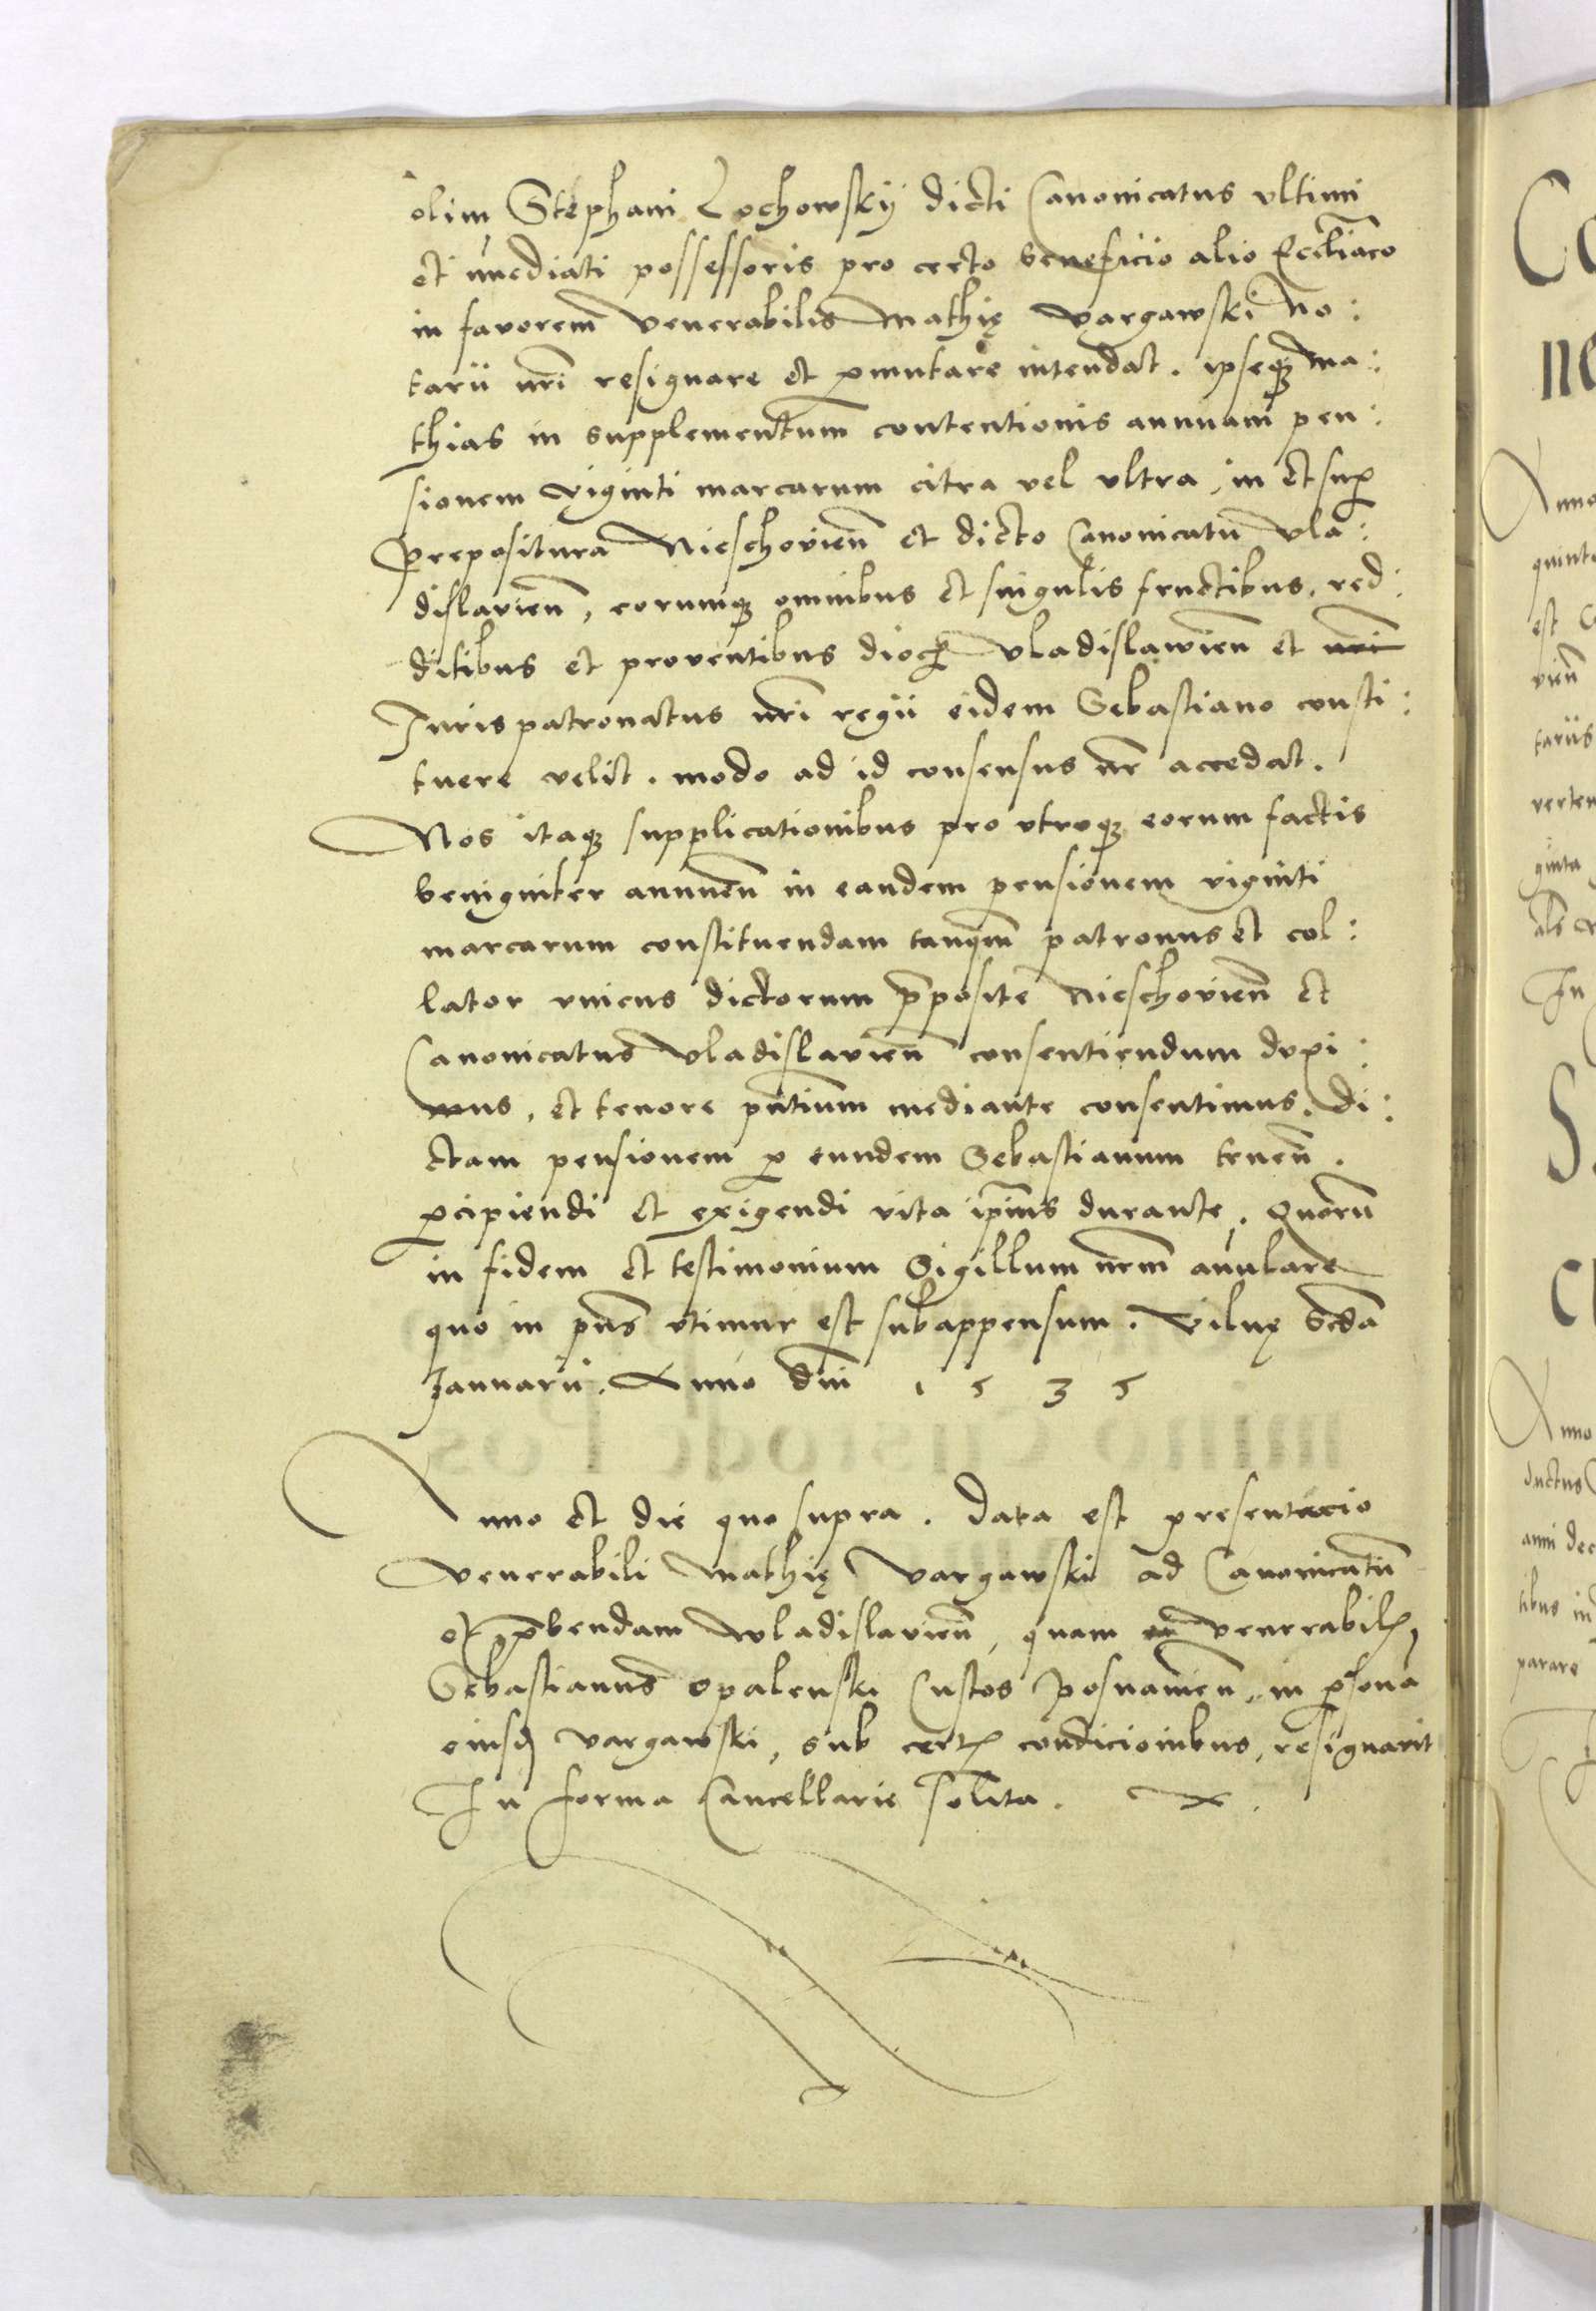 olim Stephani Lochowskij dicti Canonicatus vltimi
et im̄ediati possessoris pro certo beneficio alio Eccl̄iaco
in favorem venerabilis Mathię Vargawski No:
tarii nr̄i resignare et ꝑmutare intendat. ipseqꝫ Ma:
thias in supplementum contentionis annuam pen:
sionem viginti marcarum citra vel vltra, in et suꝑ
prepositura Nieschovien̄ et dicto Canonicatu Vla:
dislavien̄, eorumqꝫ omnibus et singulis fructibus, red:
ditibus et proventibus dioc̄ Vladislawien̄ et nr̄i
Jurispatronatus nr̄i regii eidem Sebastiano consti:
tuere velit. modo ad id consensus nr̄ accedat.
Nos itaqꝫ supplicationibus pro vtroqꝫ eorum factis
benigniter annuen̄ in eandem pensionem viginti
marcarum constituendam tanqm̄ patronus et col:
lator vnicus dictorum p̄posite Nieschovien̄ et
Canonicatus Vladislavien̄ consentiendum duxi:
mus, et tenore pn̄tium mediante consentimus. di:
ctam pensionem ꝑ eundem Sebastianum tenen̄.
ꝑcipiendi et exigendi vita ip̄ius durante. Quorū
in fidem et testimonium Sigillum nr̄m anulare
quo in pn̄s vtimur est subappensum. Vilnę Sc̄da
Januarii. Anno dn̄i 1535
Anno et die quo supra. Data est presentacio
venerabili Mathię Vargawski ad Canonicatū
et p̄bendam Wladislavien̄, quam venerabilis
Sebastianus Opalenski Custos Posnanien̄, in ꝑsona
eiusd Vargawski, sub certis condicionibus, resignarit
In forma Cancellarie solita.